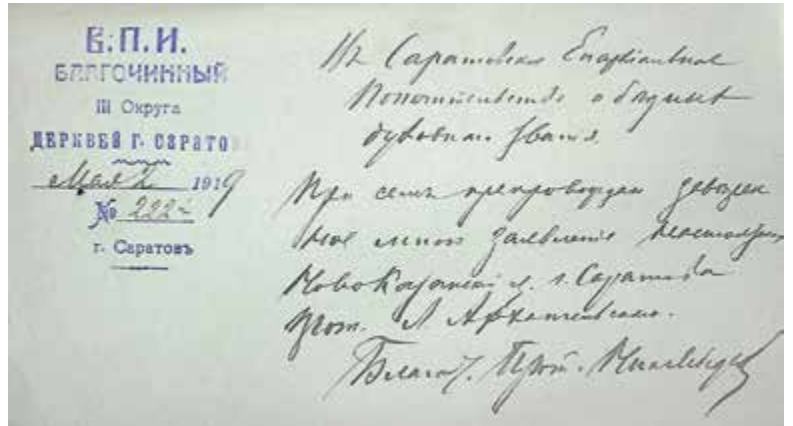 В. П. И.
БЛАГОЧИННЫЙ
III Округа
ЦЕРКВЕЙ Г. САРАТО
Мая 2 1919
№ 222
г. Саратовъ
Въ Саратовское Епархіальное
Попечительство о бѣдныхъ
духовнаго званія
При семъ препровождаю
мною заявленіе
Ново Казанской ц. г. Саратова
прот. Л Архангельскаго.
Благоч. Прот.